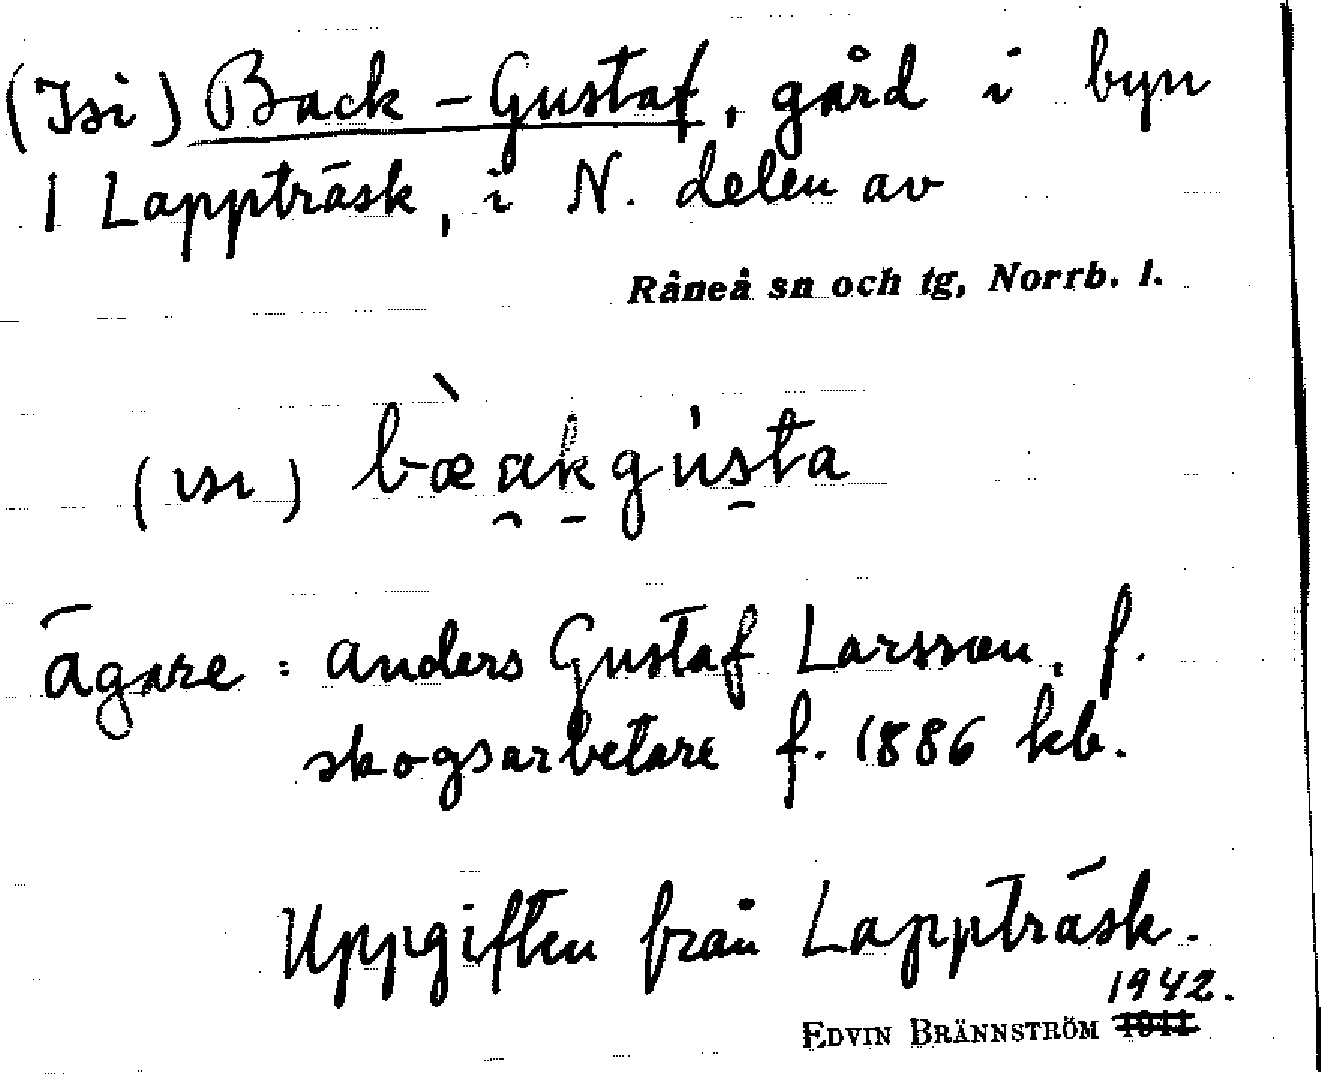 (Isi) Back-Gustaf, gård i byn
1 Lappträsk, i N. delen av
Råneå sn och tg, Norrb. l.
(ısı) bæ̀a̯k̠gús̠ta
Ägare: Anders Gustaf Larsson, f.
skogsarbetare f. 1886 kb.
Uppgiften från Lappträsk.
1942.
EDVIN BRÄNNSTRÖM 1941